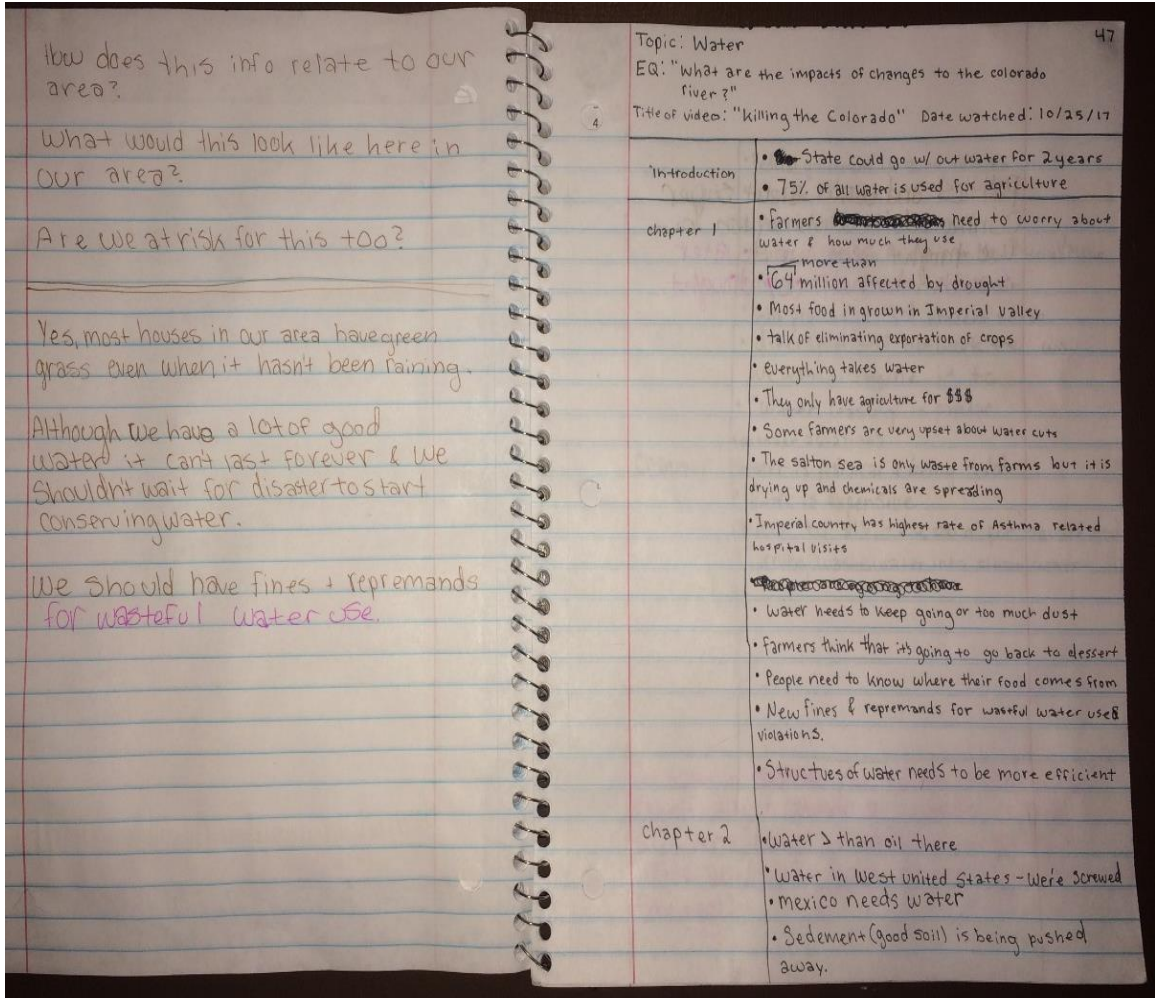 How does this info relate to our
area?
What would this look like here in
our area?
Are we at risk for this too?
Yes, most houses in our area have green
grass even when it hasn't been raining.
Although we have a lot of good
water it can't last forever & we
shouldn't wait for disaster to start
conserving water.
We should have fines + repremands
for wasteful water use.
47
Topic: Water
EQ: "What are the impacts of changes to the colorado
river?"
Title of video: "Killing the Colorado" Date watched: 10/25/17
4
Introduction
• State could go w/ out water for 2 years
• 75% of all water is used for agriculture
chapter 1
• Farmers need to worry about
water & how much they use
more than
• 64 million affected by drought
• Most food in grown in Imperial Valley
• talk of eliminating exportation of crops
• everything takes water
• They only have agriculture for $$$
• Some farmers are very upset about water cuts
• The salton sea is only waste from farms but it is
drying up and chemicals are spreading
• Imperial country has highest rate of Asthma related
hospital visits
• Water needs to keep going or too much dust
• farmers think that it's going to go back to dessert
• People need to know where their food comes from
• New fines & repremands for wastful water use &
violations.
• Structues of water needs to be more efficient
chapter 2
• Water > than oil there
• Water in West united States - We're screwed
• mexico needs water
• Sedement (good soil) is being pushed
away.